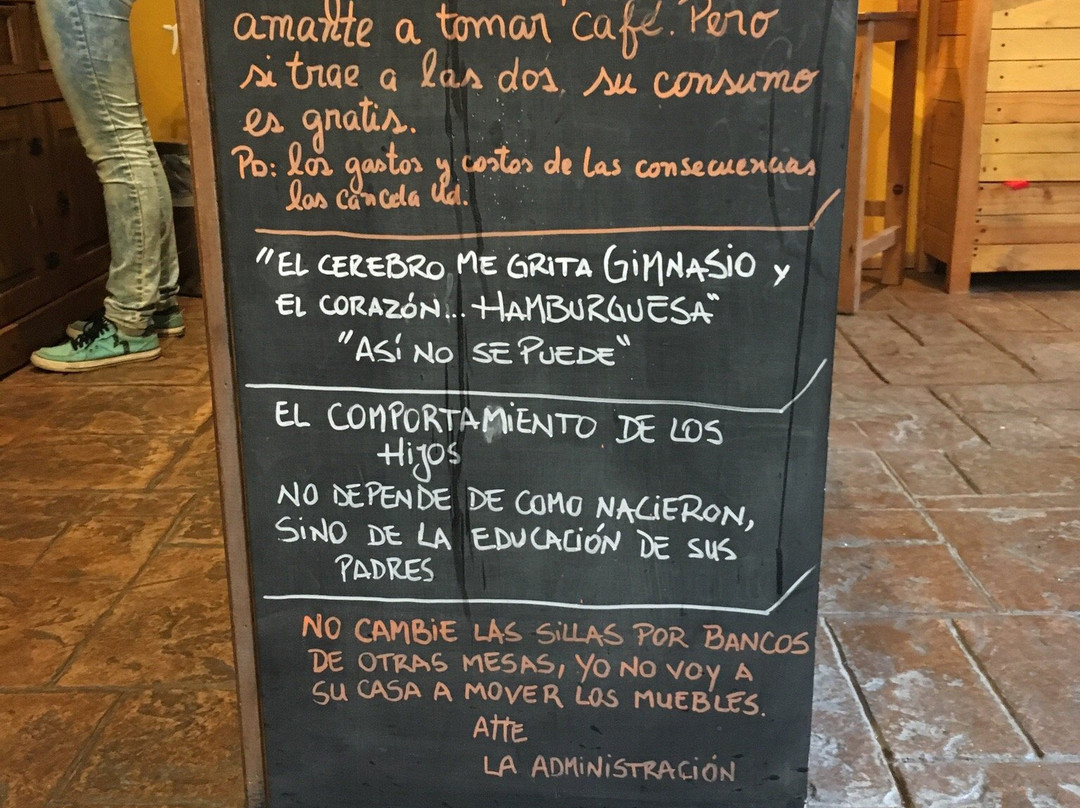 amante a tomar café. Pero
si trae a las dos, su consumo
es gratis.
PD: los gastos y costos de las consecuencias
los cancela Ud.
"EL CEREBRO ME GRITA GIMNASIO y
EL CORAZÓN... HAMBURGUESA"
"ASÍ NO SE PUEDE"
EL COMPORTAMIENTO DE LOS
HIJOS
NO DEPENDE DE COMO NACIERON,
SINO DE LA EDUCACIÓN DE SUS
PADRES
NO CAMBIE LAS SILLAS POR BANCOS
DE OTRAS MESAS, YO NO VOY A
SU CASA A MOVER LOS MUEBLES.
ATTE
LA ADMINISTRACIÓN